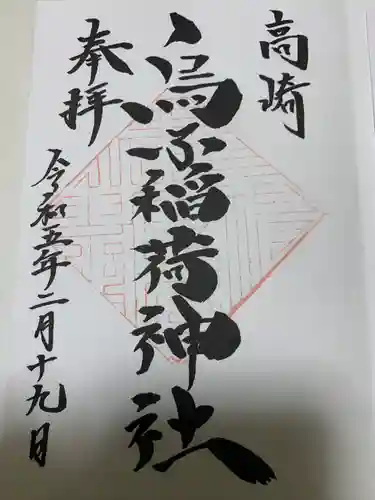 高崎
烏子稲荷神社
奉拝
令和五年二月十九日